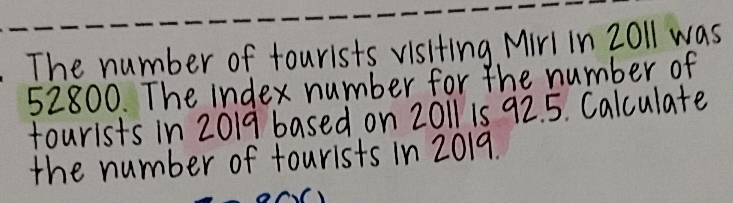 The number of tourists visiting Miri in 2011 was
52800. The index number for the number of
tourists in 2019 based on 2011 is 92.5. Calculate
the number of tourists in 2019.